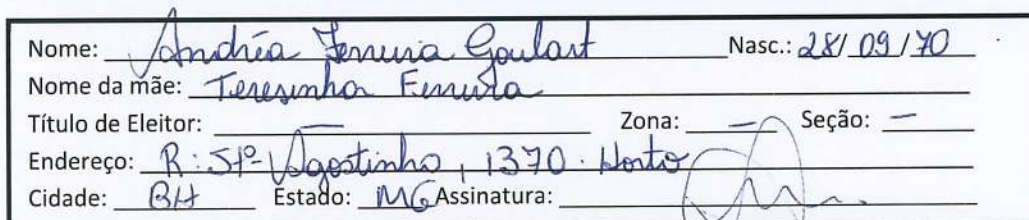 Nome: Andréa Ferreira Goulart Nasc.: 28/09/70
Nome da mãe: Teresinha Ferreira
Título de Eleitor: — Zona: — Seção: —
Endereço: R: Stº Agostinho, 1370. Horto
Cidade: BH Estado: MG Assinatura: